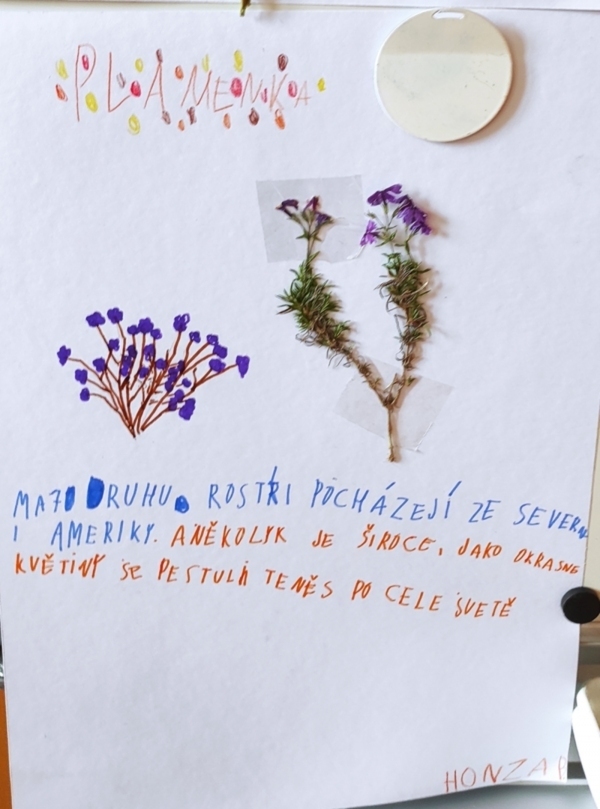 PLAMENKA
MA70 DRUHU. ROSTŘI POCHÁZEJÍ ZE SEVERN
I AMERIKY. ANĚKOLYK JE ŠIROCE, JAKO OKRASNE
KVĚTINY SE PESTULÁ TENĚS PO CELE SVETĚ
HONZA P